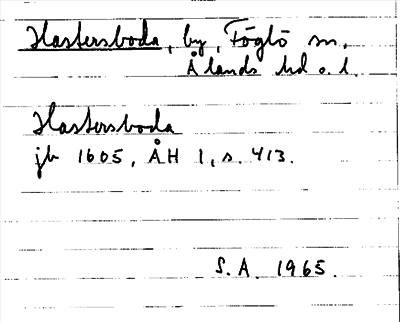 Hastersboda, by, Föglö sn,
Ålands hd o. l.
Hastersboda
jb 1605, ÅH 1, s. 413.
S.A. 1965.